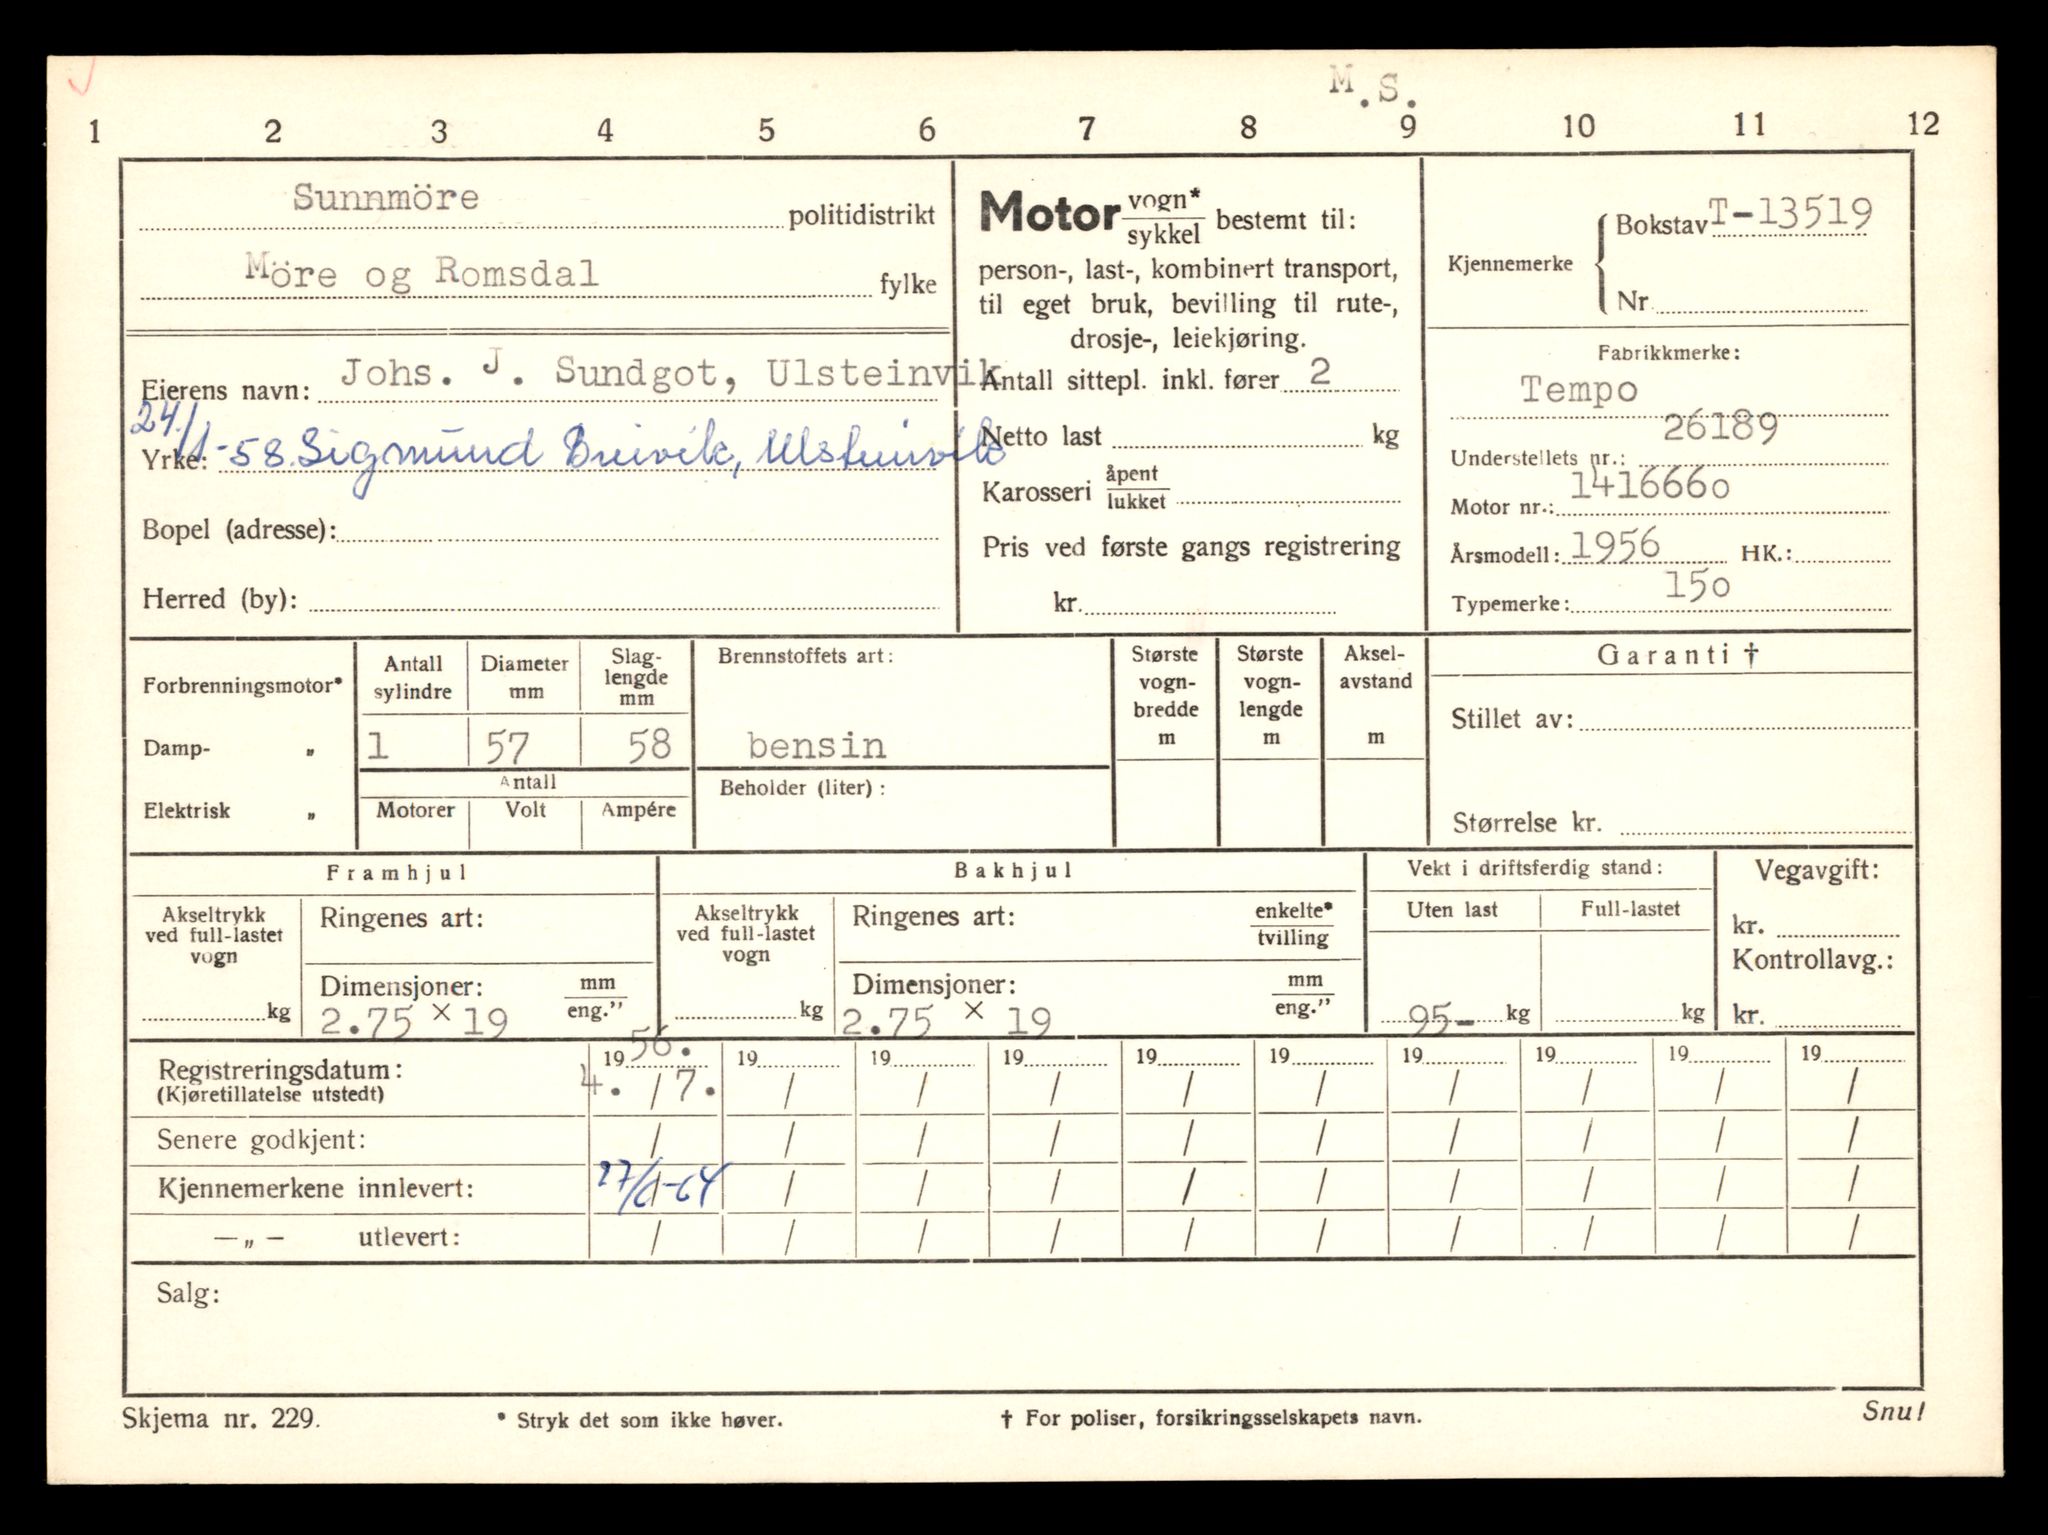 M.S.
1 2 3 4 5 6 7 8 9 10 11 12
Sunnmöre politidistrikt
Möre og Romsdal fylke
Eierens navn: Johs. J. Sundgot, Ulsteinvik
24/1-58. Sigmund Breivik, Ulsteinvik
Yrke:
Bopel (adresse):
Herred (by):
Motor vogn* / sykkel bestemt til:
person-, last-, kombinert transport,
til eget bruk, bevilling til rute-,
drosje-, leiekjøring.
Antall sittepl. inkl. fører 2
Netto last kg
Karosseri åpent / lukket
Pris ved første gangs registrering
kr.
Kjennemerke
Bokstav T-13519
Nr.
Fabrikkmerke:
Tempo
Understellets nr.: 26189
Motor nr.: 1416660
Årsmodell: 1956 HK.:
Typemerke: 150
Forbrenningsmotor*
Damp- „
Elektrisk „
Antall sylindre
Diameter mm
Slag-lengde mm
1 57 58
Antall
Motorer Volt Ampére
Brennstoffets art:
bensin
Beholder (liter):
Største vogn-bredde m
Største vogn-lengde m
Aksel-avstand m
Garanti †
Stillet av:
Størrelse kr.
Framhjul
Akseltrykk ved full-lastet vogn
kg
Ringenes art:
Dimensjoner: mm / eng.”
2.75 x 19
Bakhjul
Akseltrykk ved full-lastet vogn
kg
Ringenes art: enkelte* / tvilling
Dimensjoner: mm / eng.”
2.75 x 19
Vekt i driftsferdig stand:
Uten last Full-lastet
95- kg kg
Vegavgift:
kr.
Kontrollavg.:
kr.
Registreringsdatum: 1956. 19 19 19 19 19 19 19 19 19
(Kjøretillatelse utstedt) 4. / 7. / / / / / / / / /
Senere godkjent: / / / / / / / / / /
Kjennemerkene innlevert: / / / / / / / / /
— „ — utlevert: / / / / / / / / / /
Salg:
Skjema nr. 229.
* Stryk det som ikke høver.
† For poliser, forsikringsselskapets navn.
Snu!